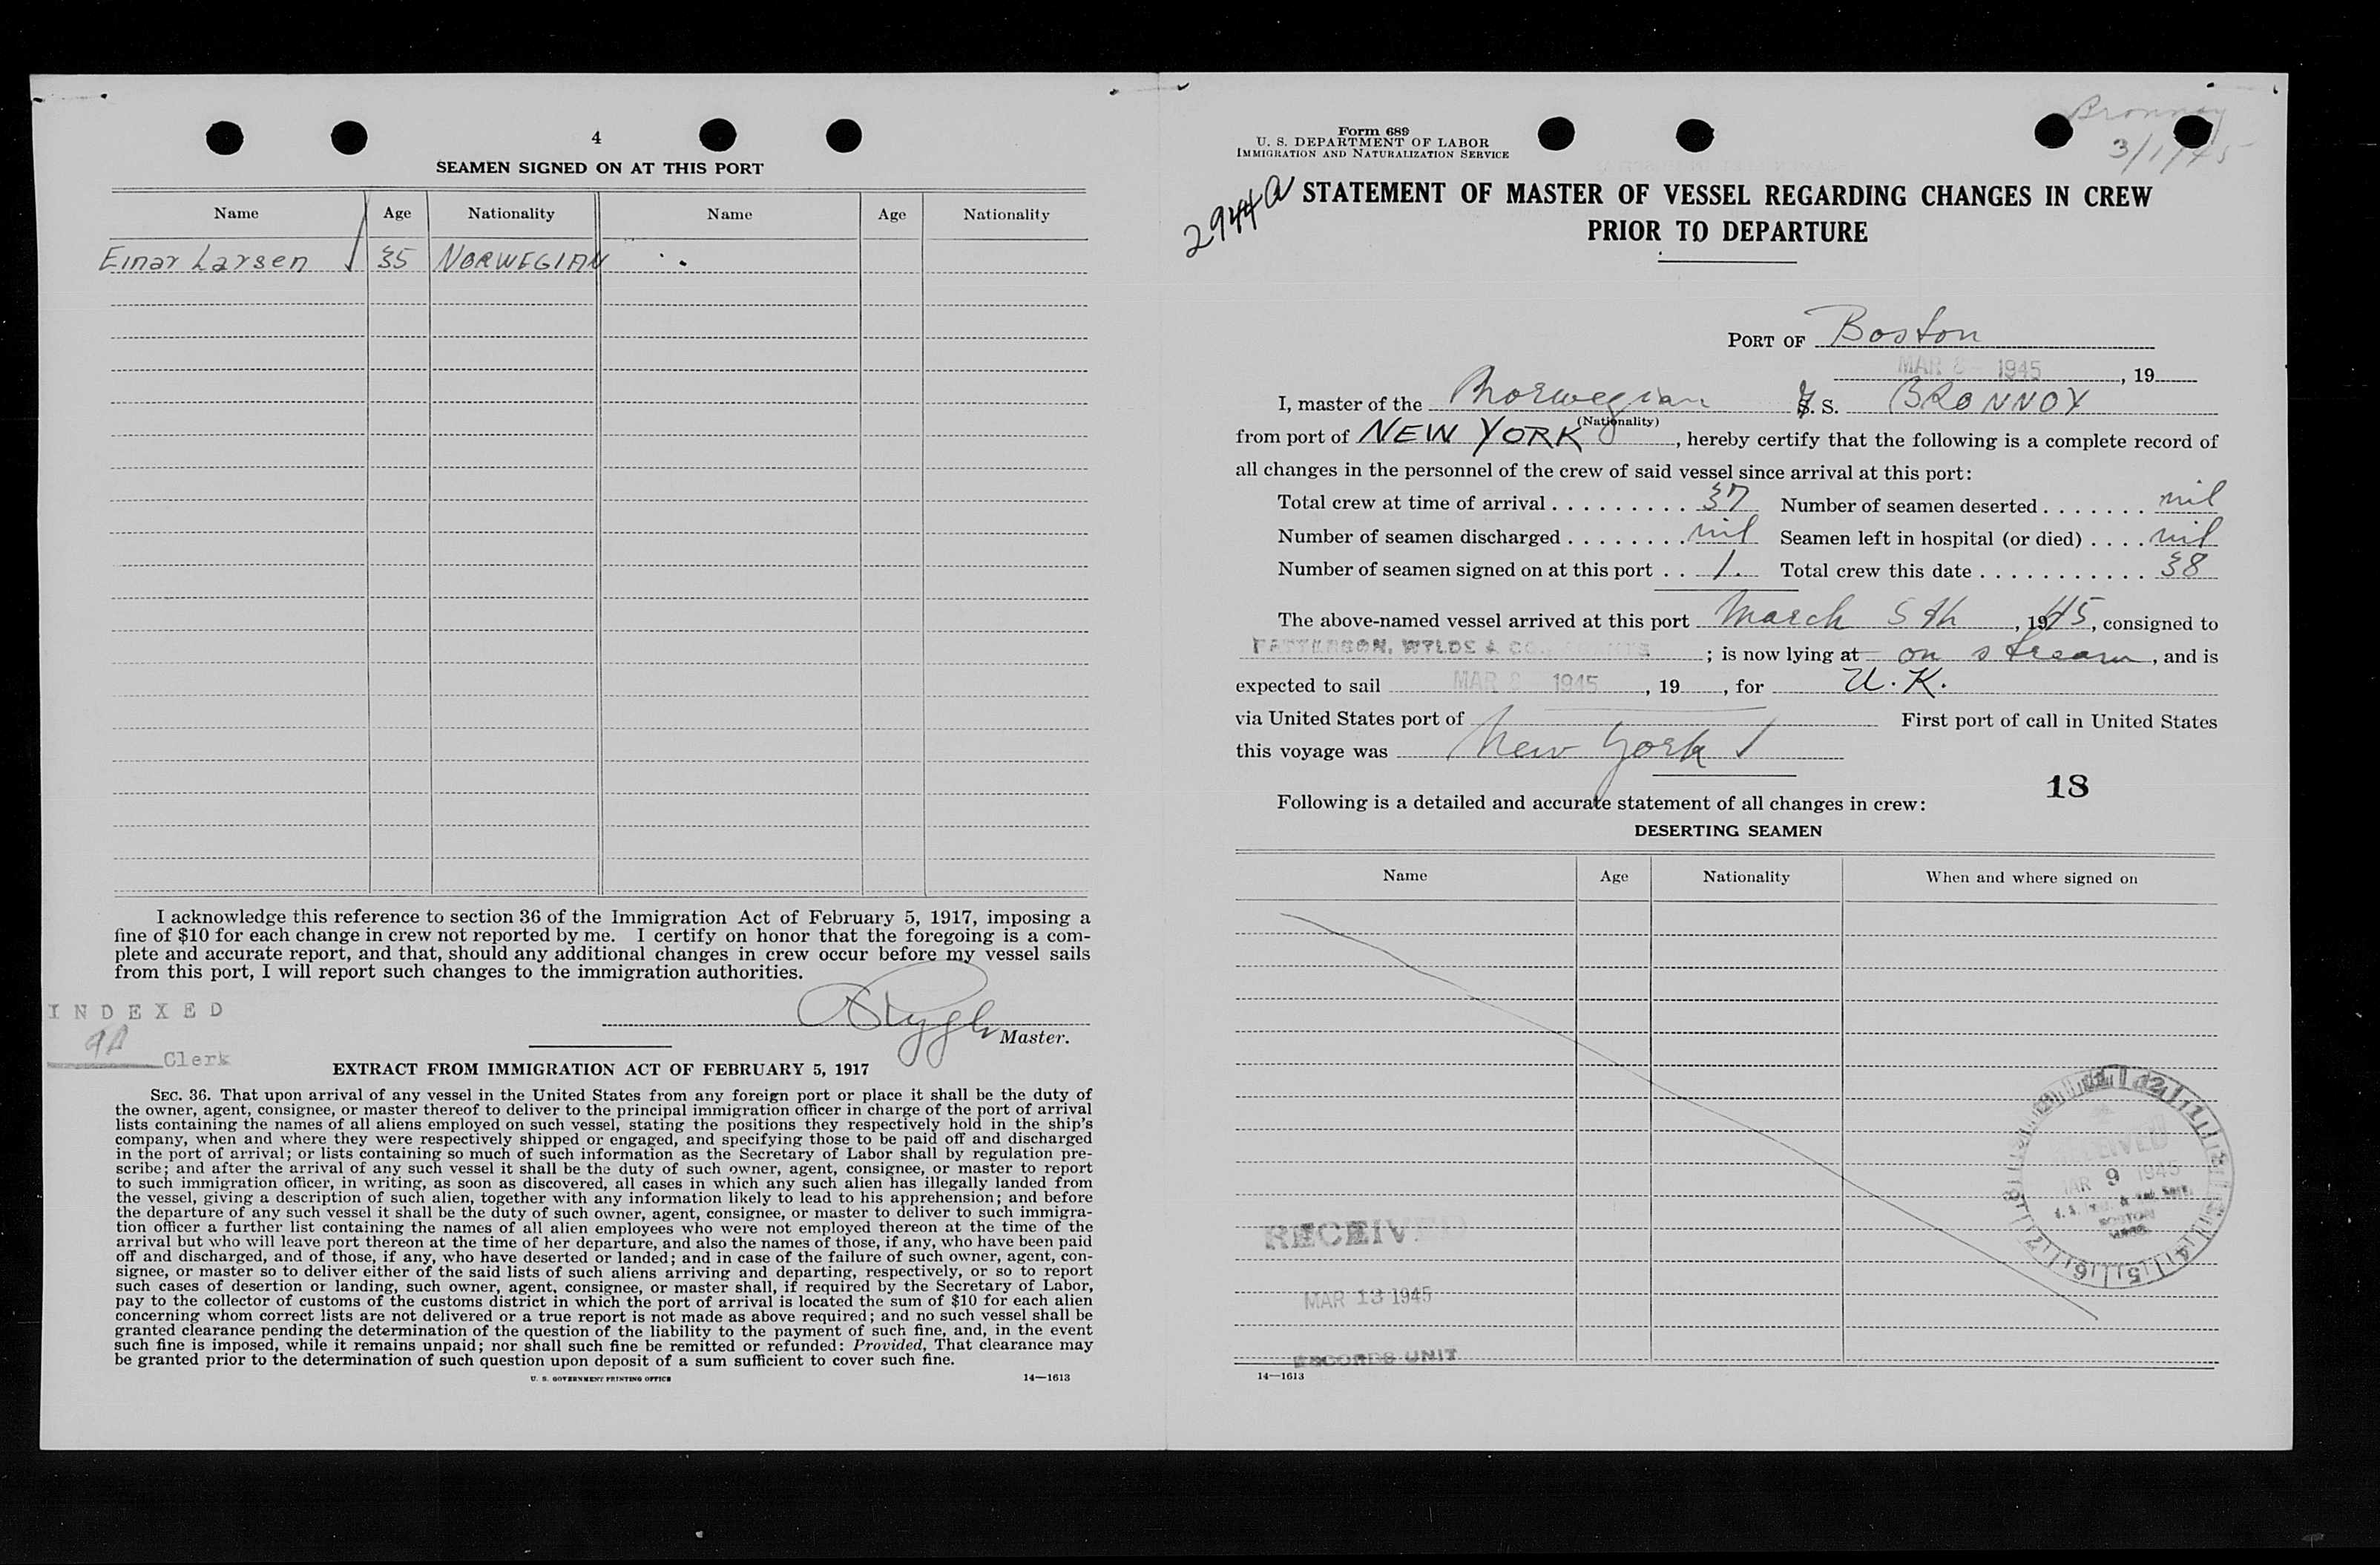 4
SEAMEN SIGNED ON AT THIS PORT
Name Age Nationality Name Age Nationality
Einar Larsen 35 NORWEGIAN
I acknowledge this reference to section 36 of the Immigration Act of February 5, 1917, imposing a
fine of $10 for each change in crew not reported by me. I certify on honor that the foregoing is a com-
plete and accurate report, and that, should any additional changes in crew occur before my vessel sails
from this port, I will report such changes to the immigration authorities.
INDEXED
Master.
Clerk
EXTRACT FROM IMMIGRATION ACT OF FEBRUARY 5, 1917
SEC. 36. That upon arrival of any vessel in the United States from any foreign port or place it shall be the duty of
the owner, agent, consignee, or master thereof to deliver to the principal immigration officer in charge of the port of arrival
lists containing the names of all aliens employed on such vessel, stating the positions they respectively hold in the ship's
company, when and where they were respectively shipped or engaged, and specifying those to be paid off and discharged
in the port of arrival; or lists containing so much of such information as the Secretary of Labor shall by regulation pre-
scribe; and after the arrival of any such vessel it shall be the duty of such owner, agent, consignee, or master to report
to such immigration officer, in writing, as soon as discovered, all cases in which any such alien has illegally landed from
the vessel, giving a description of such alien, together with any information likely to lead to his apprehension; and before
the departure of any such vessel it shall be the duty of such owner, agent, consignee, or master to deliver to such immigra-
tion officer a further list containing the names of all alien employees who were not employed thereon at the time of the
arrival but who will leave port thereon at the time of her departure, and also the names of those, if any, who have been paid
off and discharged, and of those, if any, who have deserted or landed; and in case of the failure of such owner, agent, con-
signee, or master so to deliver either of the said lists of such aliens arriving and departing, respectively, or so to report
such cases of desertion or landing, such owner, agent, consignee, or master shall, if required by the Secretary of Labor,
pay to the collector of customs of the customs district in which the port of arrival is located the sum of $10 for each alien
concerning whom correct lists are not delivered or a true report is not made as above required; and no such vessel shall be
granted clearance pending the determination of the question of the liability to the payment of such fine, and, in the event
such fine is imposed, while it remains unpaid; nor shall such fine be remitted or refunded: Provided, That clearance may
be granted prior to the determination of such question upon deposit of a sum sufficient to cover such fine.
U. S. GOVERNMENT PRINTING OFFICE 14—1613
Bronnoy
3/1/45
Form 689
U. S. DEPARTMENT OF LABOR
IMMIGRATION AND NATURALIZATION SERVICE
2944a
STATEMENT OF MASTER OF VESSEL REGARDING CHANGES IN CREW
PRIOR TO DEPARTURE
PORT OF Boston
MAR 8 1945, 19
I, master of the Norwegian S. S. BRONNOY
(Nationality)
from port of NEW YORK, hereby certify that the following is a complete record of
all changes in the personnel of the crew of said vessel since arrival at this port:
Total crew at time of arrival 37 Number of seamen deserted nil
Number of seamen discharged nil Seamen left in hospital (or died) nil
Number of seamen signed on at this port 1. Total crew this date 38
The above-named vessel arrived at this port March 5th, 1945, consigned to
PATTERSON, WYLDE & CO., AGENTS; is now lying at on stream, and is
expected to sail MAR 8 1945, 19, for U.K.
via United States port of First port of call in United States
this voyage was New York
18
Following is a detailed and accurate statement of all changes in crew:
DESERTING SEAMEN
Name Age Nationality When and where signed on
RECEIVED
MAR 9 1945
BOSTON
MASS.
RECEIVED
MAR 13 1945
RECORDS UNIT
14—1613